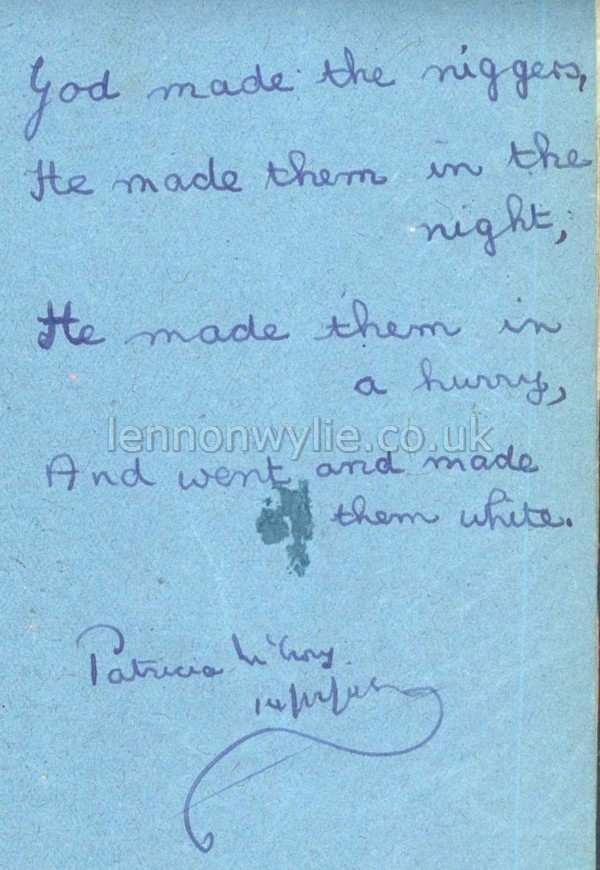 God made the niggers,
He made them in the
night,
He made them in
a hurry,
lennonwylie.co.uk
And went and made
them white.
Patricia